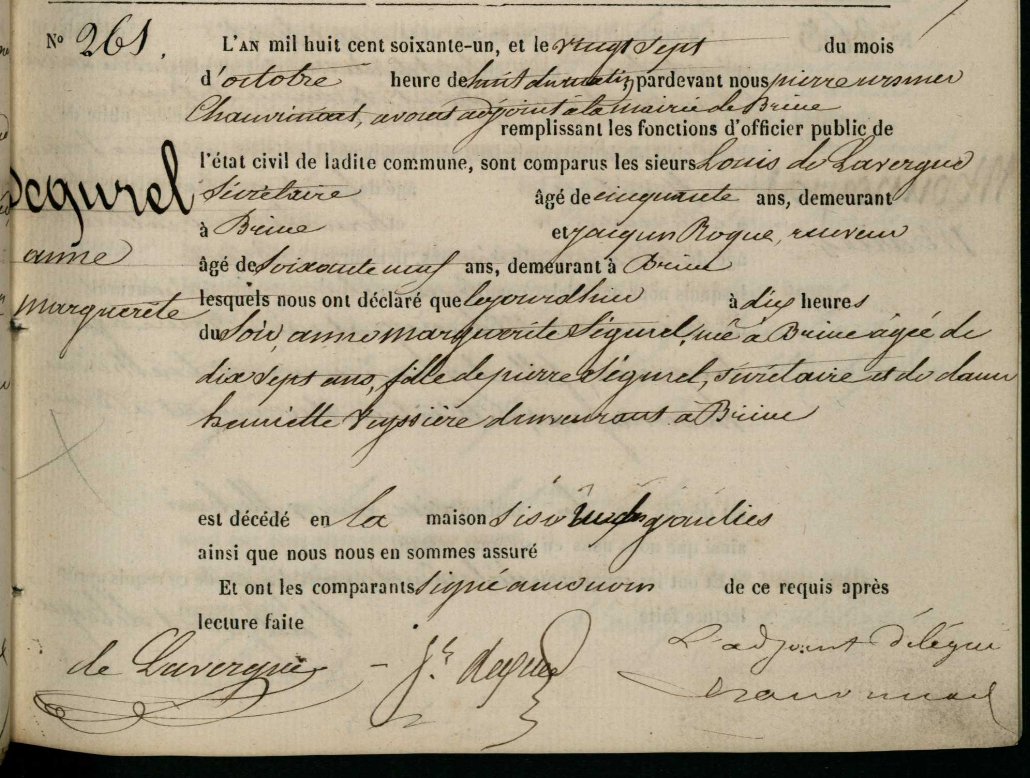 N° 261.
L'AN mil huit cent soixante-un, et le vingt sept du mois
d'octobre heure de huit du matin, pardevant nous pierre ursmer
Chauvinat, avocat adjoint à la mairie de Brive
remplissant les fonctions d'officier public de
l'état civil de ladite commune, sont comparus les sieurs Louis de Lavergne
Segurel
anne
marguerite
Sécretaire âgé de cinquante ans, demeurant
à Brive et jacques Roque, receveur
âgé de soixante neuf ans, demeurant à Brive
lesquels nous ont déclaré que le jourdhier à dix heures
du Soir, anne marguerite Ségurel, née à Brive agée de
dix sept ans, fille de pierre Ségurel, sécretaire et de dame
henriette Veyssière demeurant à Brive
est décédé en la maison sise
ainsi que nous nous en sommes assuré
Et ont les comparants signé avec nous de ce requis après
lecture faite
de Lavergne
L'adjoint délégué